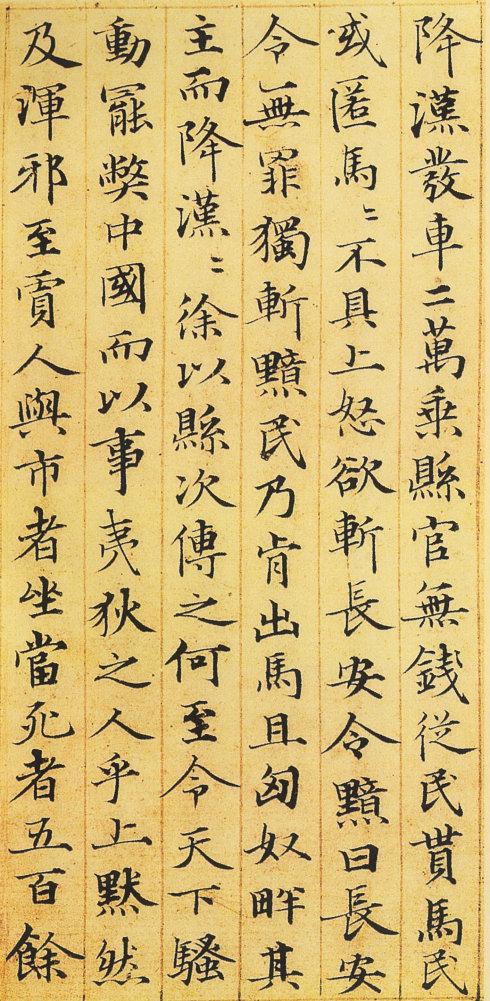 降漢發車二萬乘縣官無錢從民貰馬民
或匿馬〻不具上怒欲斬長安令黯曰長安
令無罪獨斬黯民乃肯出馬且匈奴畔其
主而降漢〻徐以縣次傳之何至令天下騷
動罷弊中國而以事夷狄之人乎上默然
及渾邪至賈人與市者坐當死者五百餘